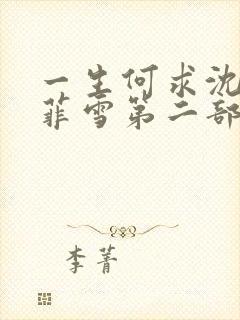 一生何求沈
菲雪第二部
李菁